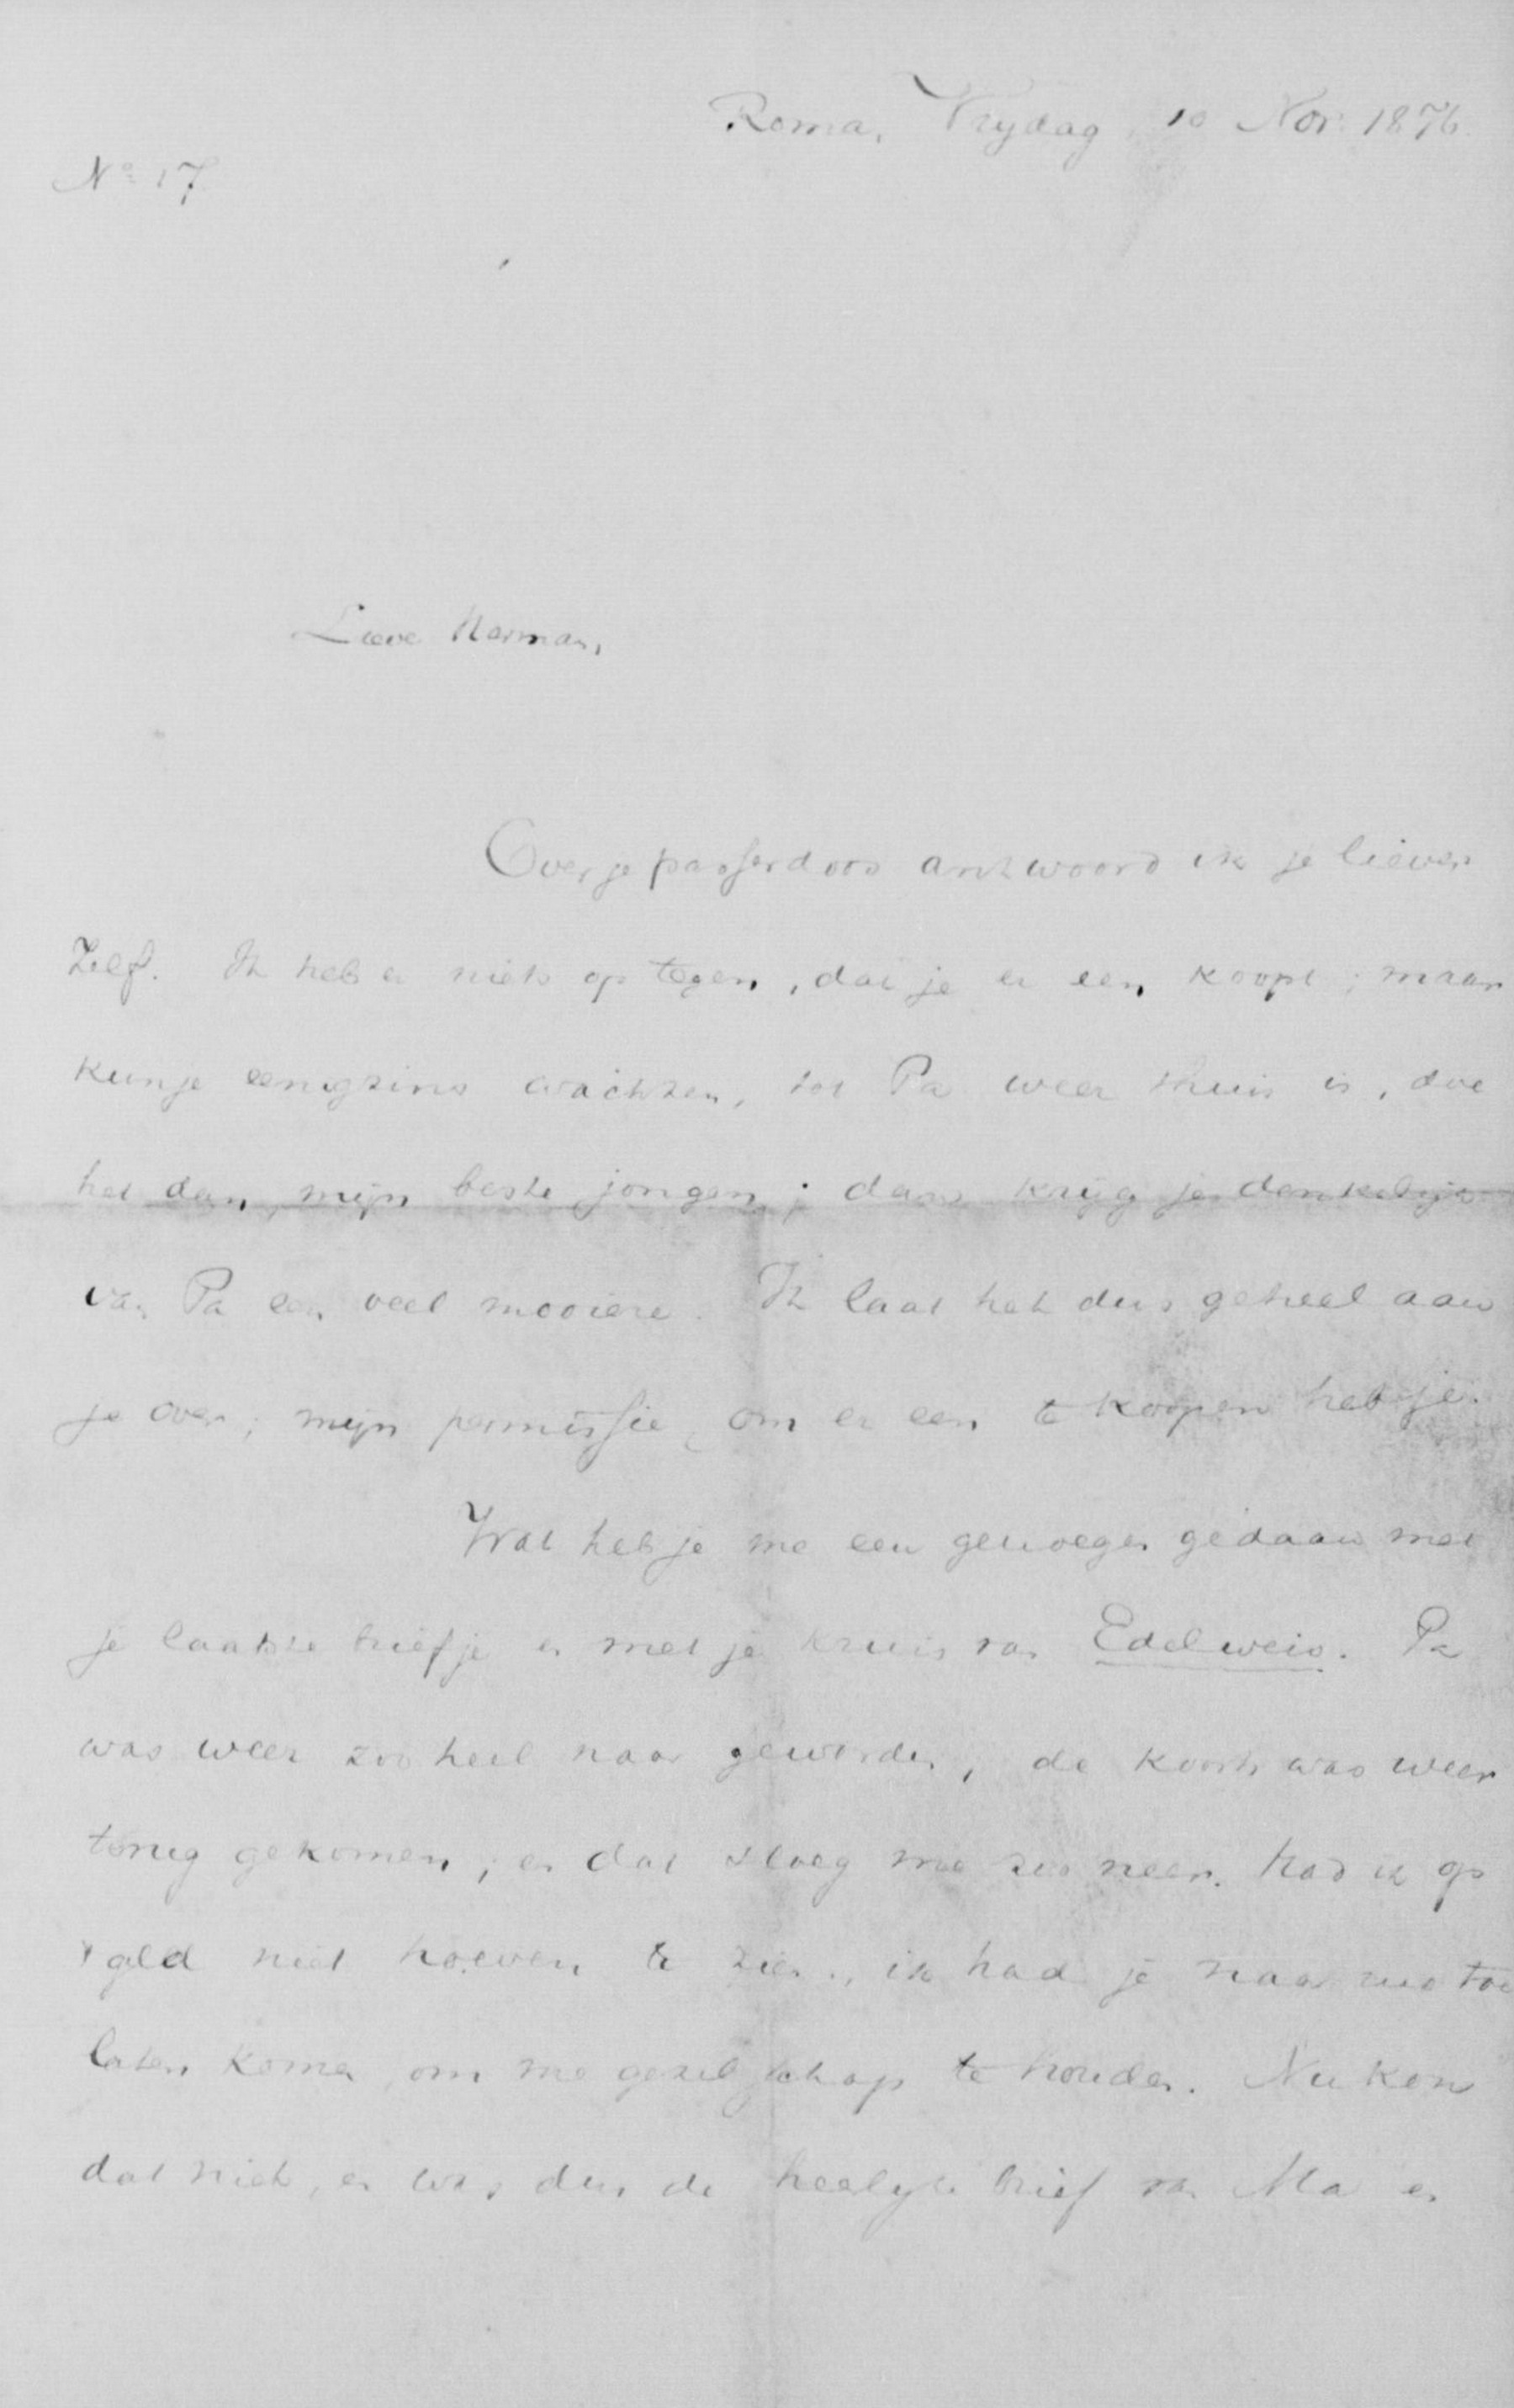 Roma, Vrydag, 10 Nov. 1876.
No 17
Lieve Herman,
Over je passerdoos antwoord ik je liever
zelf. Ik heb er niets op tegen, dat je er een koopt; maar
kun je eenigzins wachten, tot Pa weer thuis is, doe
het dan, mijn beste jongen; dan krijg je denkelijk
van Pa een veel mooiere. Ik laat het dus geheel aan
je over; mijn permissie, om er een te koopen heb je.
Wat heb je me een genoegen gedaan met
je laatste briefje en met je kruis van Edelweis. Pa
was weer zoo heel naar geworden, de koorts was weer
terug gekomen, en dat sloeg me zoo neer. Had ik op
't geld niet hoeven te zien, ik had je naar me toe
laten komen, om me gezelschap te houden. Nu kon
dat niet, en was dus de heerlyke brief van Ma en